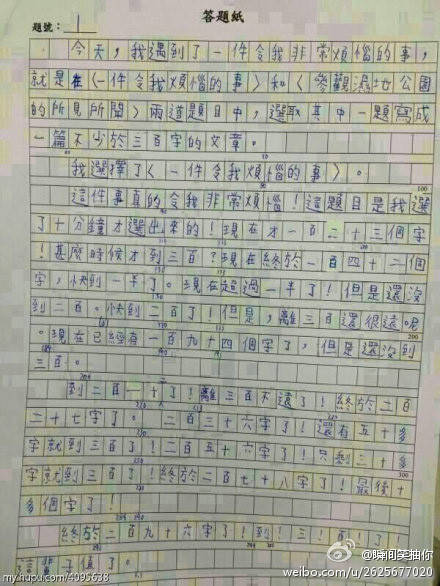 答題紙
題號：1
今天，我遇到了一件令我非常煩惱的事，
就是在〈一件令我煩惱的事〉和〈參觀濕地公園
的所見所聞〉兩道題目中，選取其中一題寫成
一篇不少於三百字的文章。
我選擇了〈一件令我煩惱的事〉。
這件事真的令我非常煩惱！這題目是我選
了十分鐘才選出來的！現在才一百二十三個字
！甚麼時候才到三百？現在終於一百四十二個
字，快到一半了。現在超過一半了！但是還沒
到二百。快到二百了！但是，離三百還很遠。
。現在已經有一百九十四個字了，但是還沒到
三百。
到二百一十了！離三百不遠了！終於二百
二十七字了。二百三十六字了！還有五十多
字就到三百了！二百五十六字了！只剩三十多
字就到三百了！終於二百七十八字了！最後十
多個字了！
終於二百九十六字了！到！三！百！了！
my.hupu.com/4095638
@瞬间笑抽你
weibo.com/u/2625677020